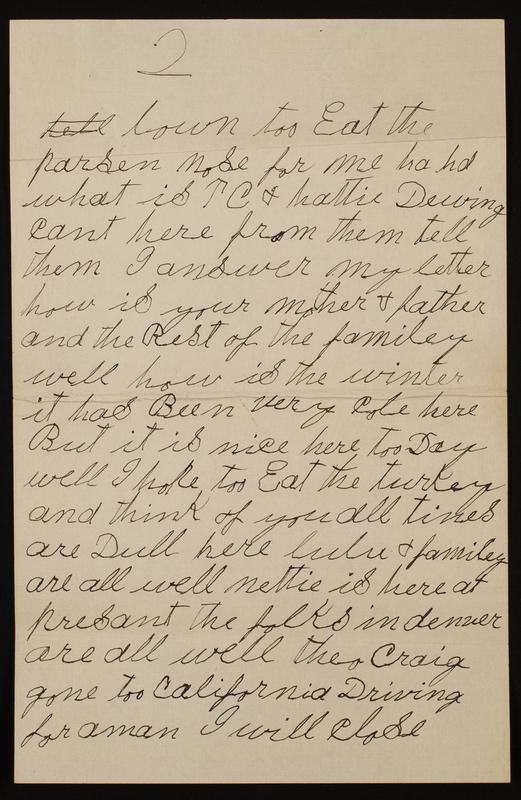 2
lown too Eat the
parsen nose for me ha hd
what is T C & hattie Dewing
cant here from them tell
them I answer my letter
how is your mother & father
and the Rest of the familey
well how is the winter
it has Been very cole here
But it is nice here too Day
well I hope too Eat the turkey
and think of you all times
are Dull here lulu & familey
are all well nettie is here at
presant the folks in denver
are all well theo Craig
gone too California Driving
for a man I will close